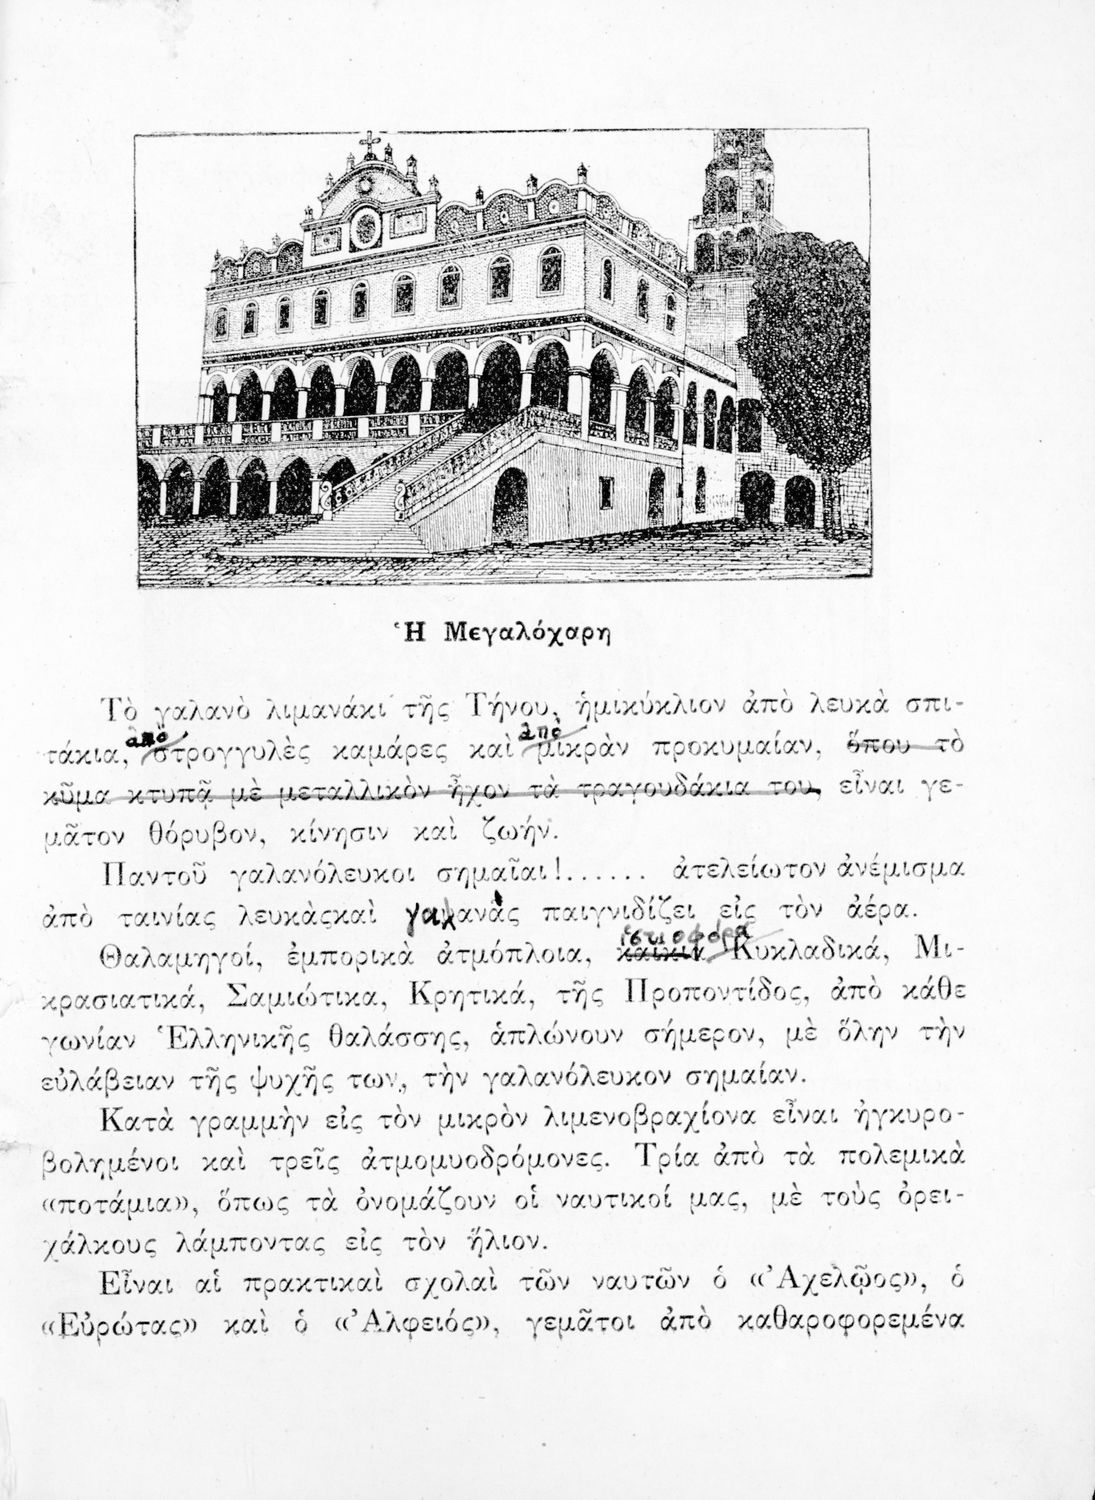 Ἡ Μεγαλόχαρη
Τὸ γαλανὸ λιμανάκι τῆς Τήνου, ἡμικύκλιον ἀπὸ λευκὰ σπι-
ἀπὸ ἀπὸ
τάκια, στρογγυλὲς καμάρες καὶ μικρὰν προκυμαίαν, ὅπου τὸ
κῦμα κτυπᾷ μὲ μεταλλικὸν ἦχον τὰ τραγουδάκια του, εἶναι γε-
μᾶτον θόρυβον, κίνησιν καὶ ζωήν.
Παντοῦ γαλανόλευκοι σημαῖαι!...... ἀτελείωτον ἀνέμισμα
ἀπὸ ταινίας λευκὰς καὶ γαλανὰς παιγνιδίζει εἰς τὸν ἀέρα.
ἱστιοφόρα
Θαλαμηγοί, ἐμπορικὰ ἀτμόπλοια, καίκια Κυκλαδικά, Μι-
κρασιατικά, Σαμιώτικα, Κρητικά, τῆς Προποντίδος, ἀπὸ κάθε
γωνίαν Ἑλληνικῆς θαλάσσης, ἁπλώνουν σήμερον, μὲ ὅλην τὴν
εὐλάβειαν τῆς ψυχῆς των, τὴν γαλανόλευκον σημαίαν.
Κατὰ γραμμὴν εἰς τὸν μικρὸν λιμενοβραχίονα εἶναι ἠγκυρο-
βολημένοι καὶ τρεῖς ἀτμομυοδρόμονες. Τρία ἀπὸ τὰ πολεμικὰ
«ποτάμια», ὅπως τὰ ὀνομάζουν οἱ ναυτικοί μας, μὲ τοὺς ὀρει-
χάλκους λάμποντας εἰς τὸν ἥλιον.
Εἶναι αἱ πρακτικαὶ σχολαὶ τῶν ναυτῶν ὁ «Ἀχελῷος», ὁ
«Εὐρώτας» καὶ ὁ «Ἀλφειός», γεμᾶτοι ἀπὸ καθαροφορεμένα